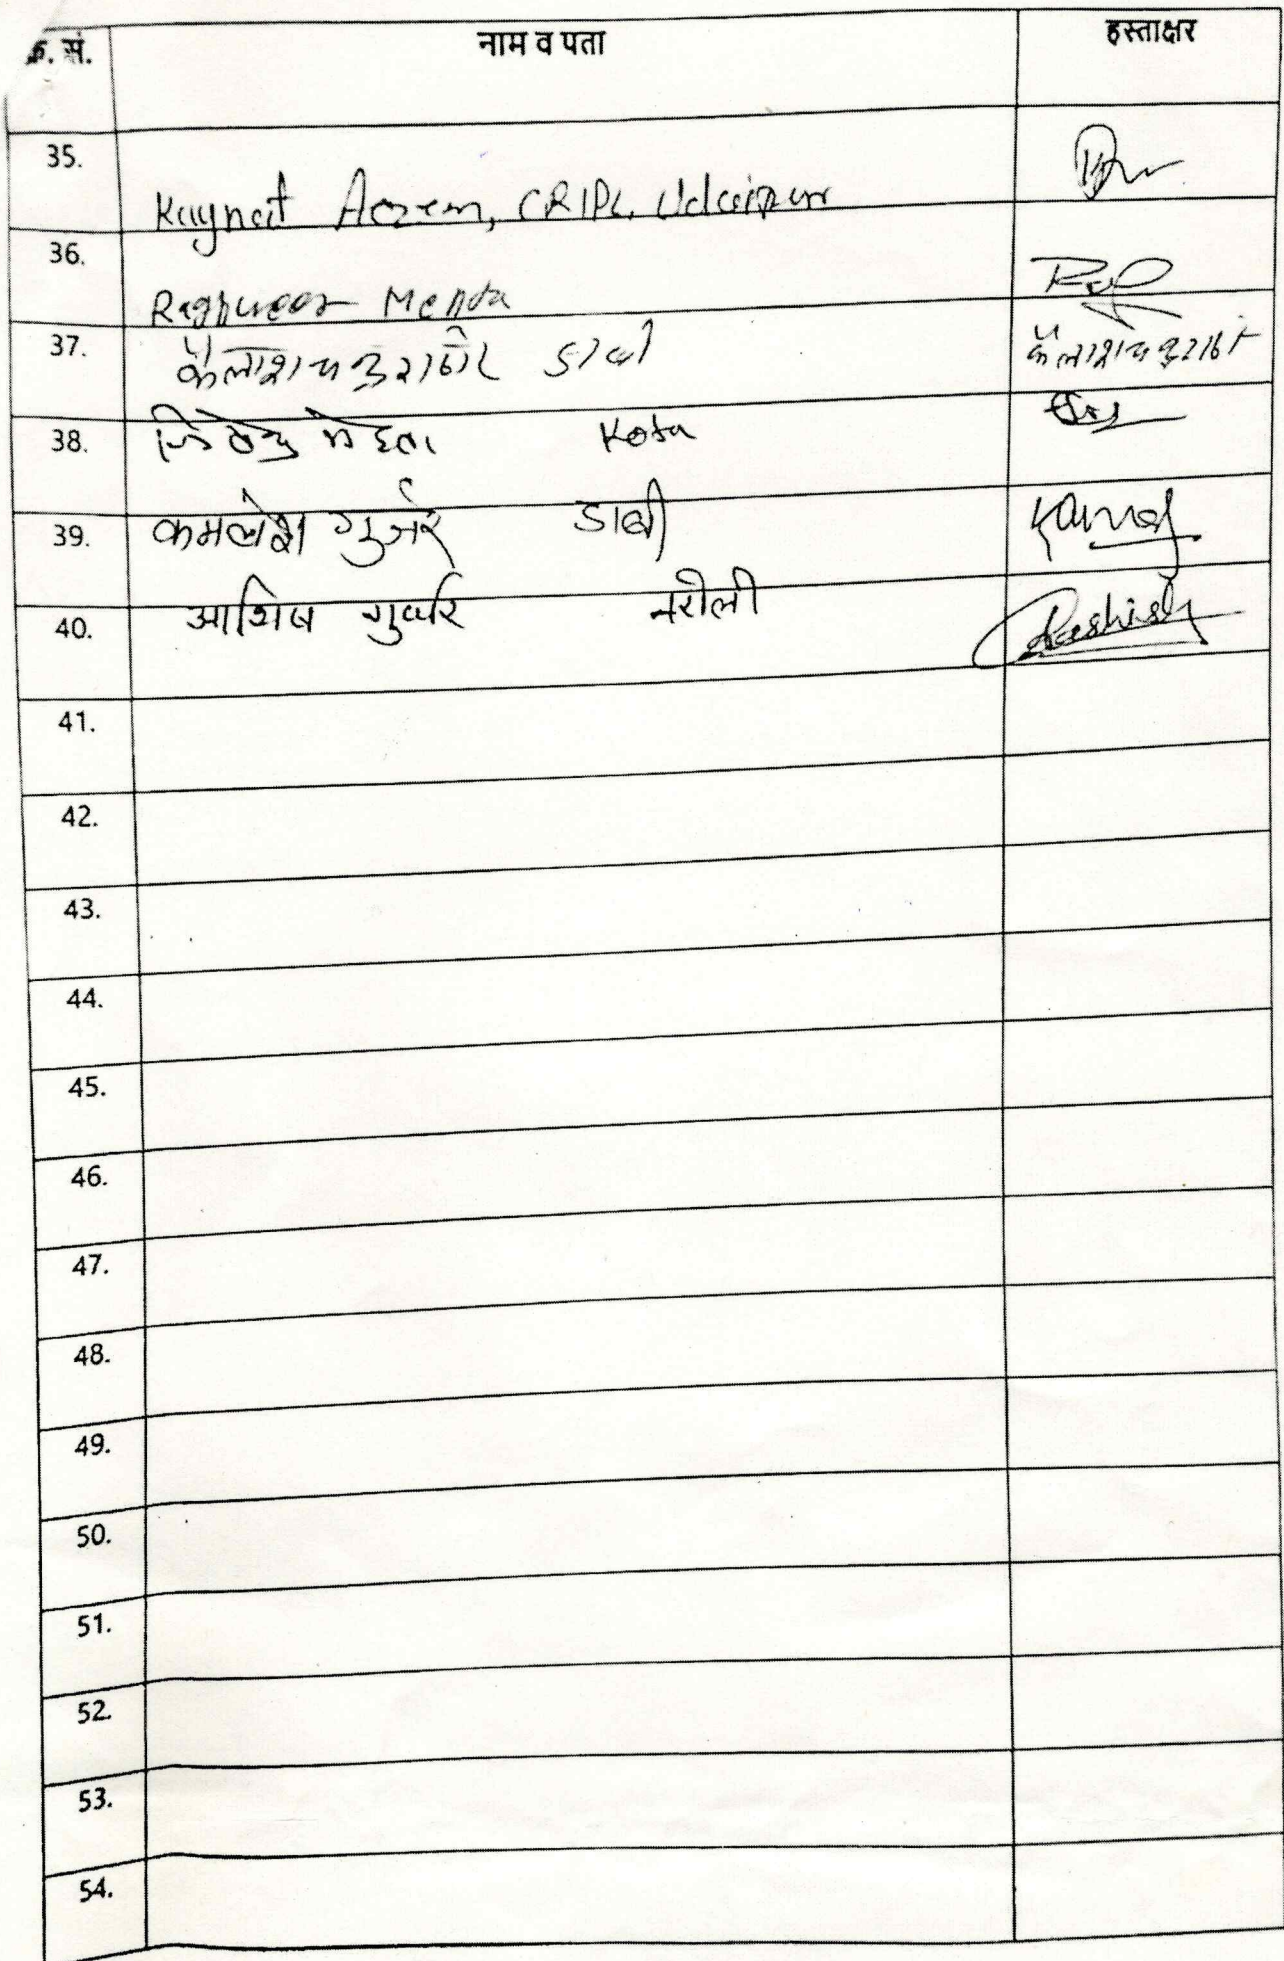 क्र. सं. नाम व पता हस्ताक्षर
35. Kaynat Aozem, CRIPL, Udaipur
36. Raghuveer Menda
37. कैलाशचन्द्र राठौर डाबी कैलाशचन्द्र राठौर
38. मेहता Kota
39. कमलेश गुजर डाबी Kamal
40. आशिष गुर्जर नरोली Aashish
41.
42.
43.
44.
45.
46.
47.
48.
49.
50.
51.
52.
53.
54.